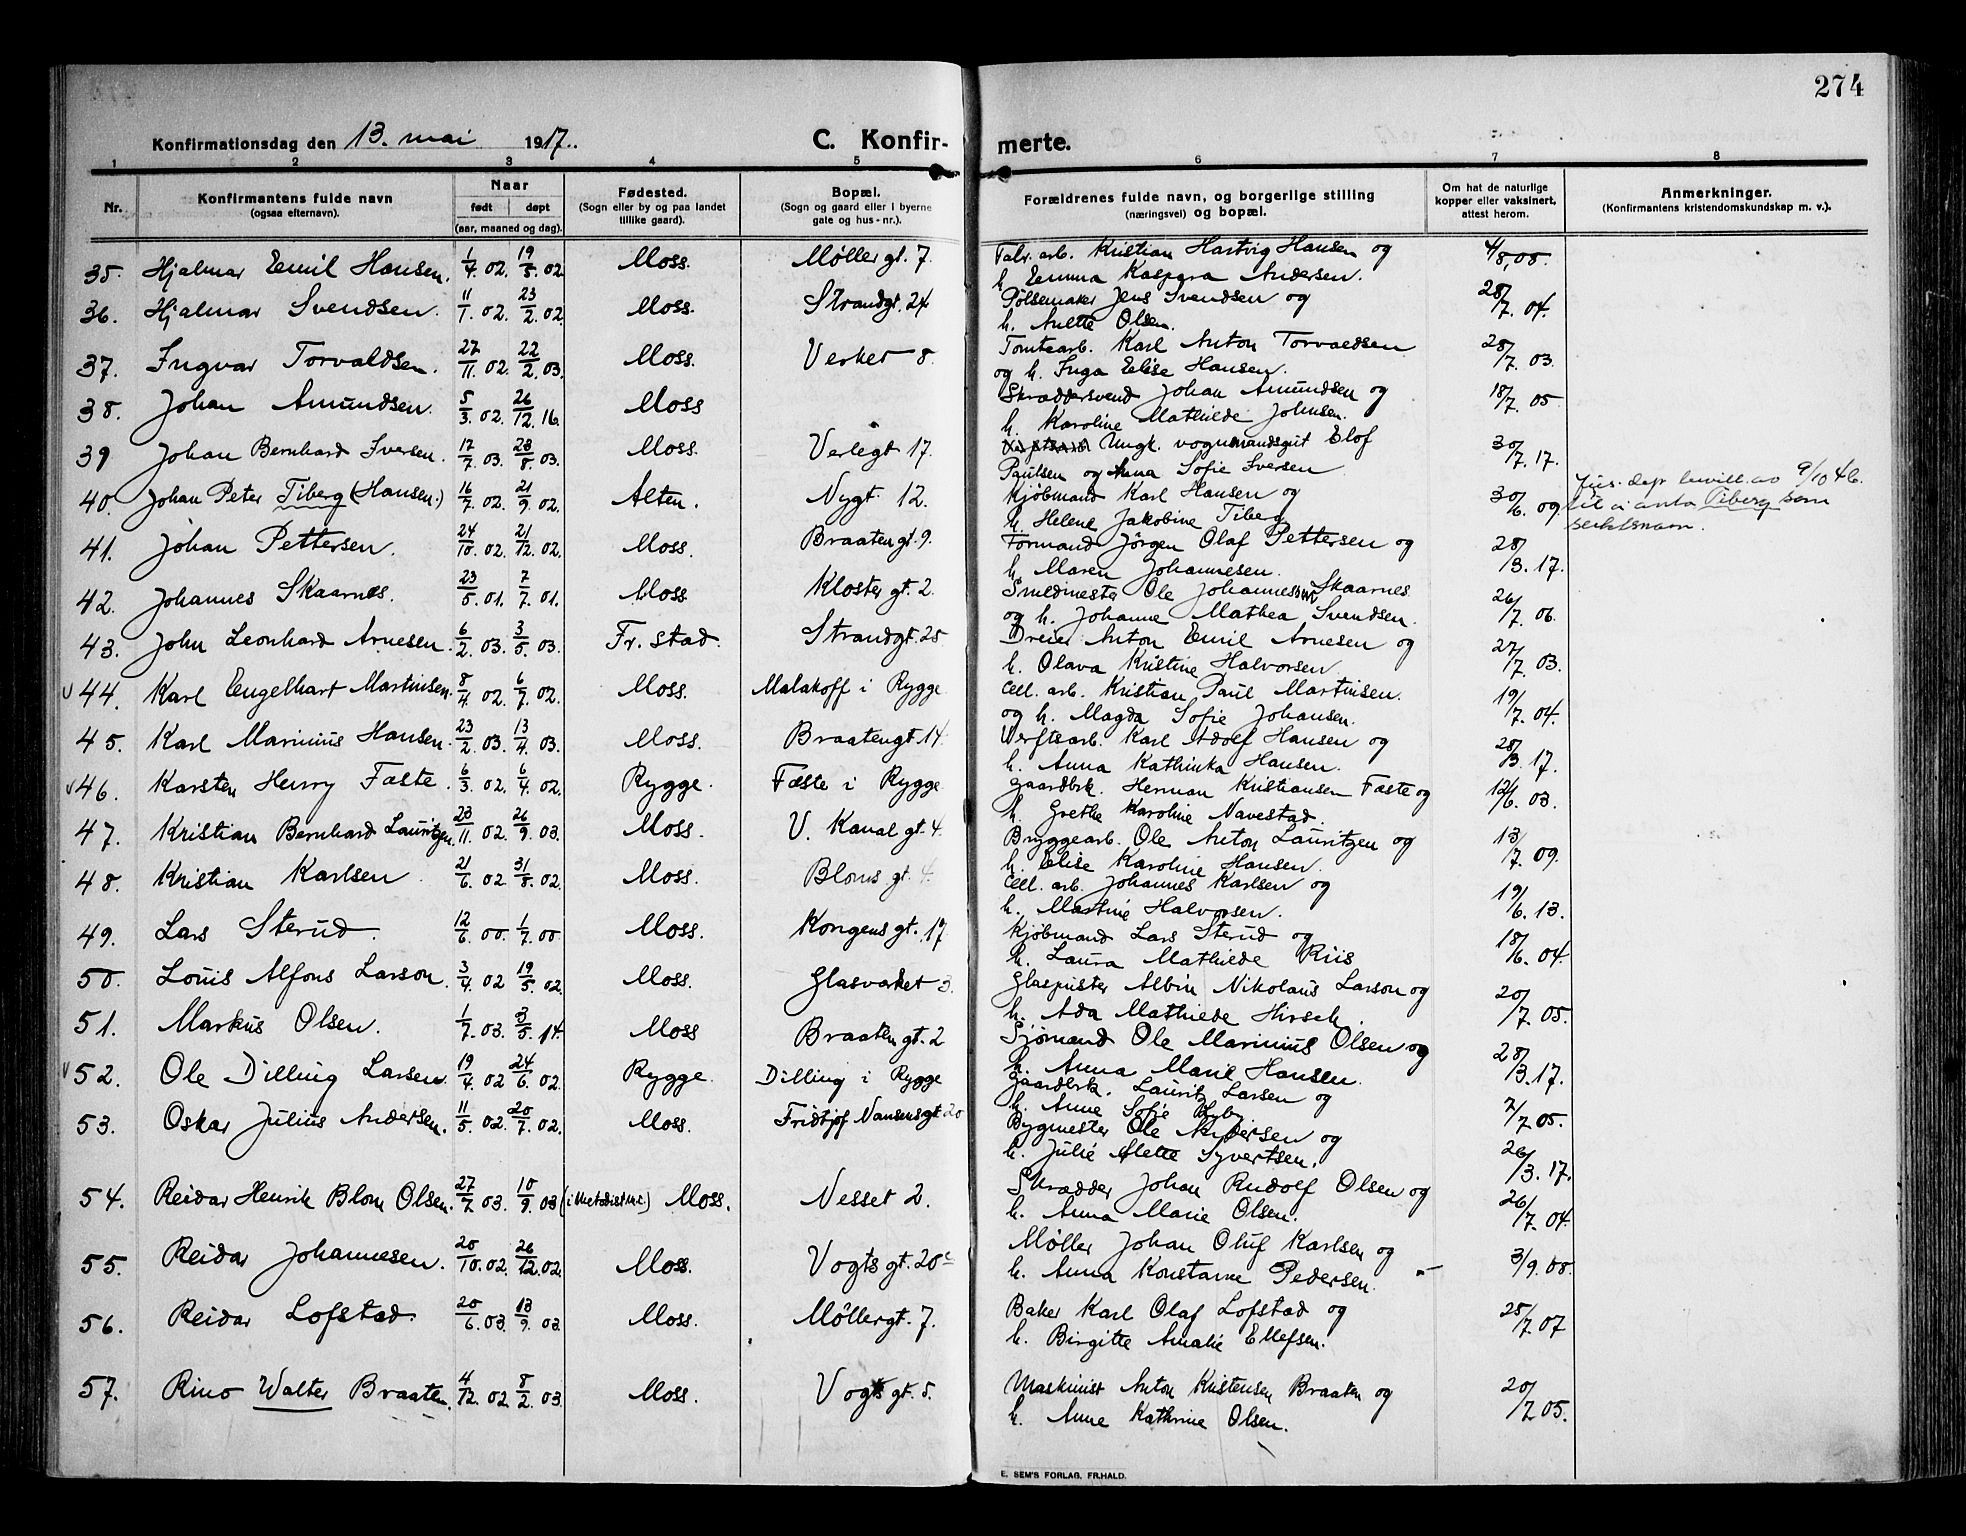 274
Konfirmationsdag den 13. mai 1917.
C. Konfir- merte.
1 2 3 4 5 6 7 8
Nr. Konfirmantens fulde navn (ogsaa efternavn). Naar født døpt (aar, maaned og dag). Fødested. (Sogn eller by og paa landet tillike gaard). Bopæl. (Sogn og gaard eller i byerne gate og hus-nr.). Forældrenes fulde navn, og borgerlige stilling (næringsvei) og bopæl. Om hat de naturlige kopper eller vaksinert, attest herom. Anmerkninger. (Konfirmantens kristendomskundskap m. v.).
35. Hjalmar Emil Hansen. 1/4 02. 19/5 02. Moss. Møllergt. 7. Fabr. arb. Kristian Hartvig Hansen og 4/8, 08.
h. Emma Kaspara Andersen.
36. Hjalmar Svendsen. 11/1. 02. 23/2. 02. Moss. Strandgt. 24 Pølsemaker Jens Svendsen og 28/7. 04.
h. Anette Olsen.
37. Ingvar Torvaldsen. 27/11. 02. 22/2. 03. Moss. Verket 8. Tomtearb. Karl Anton Torvaldsen 28/7. 03.
og h. Inga Elise Hansen.
38. Johan Amundsen. 5/3. 02. 26/12. 16. Moss Skræddersvend Johan Amundsen og 18/7. 05
h. Karoline Mathilde Johnsen.
39 Johan Bernhard Iversen. 17/7. 03. 23/8. 03. Moss. Verlegt 17. Ungk. vognmandsgut Elof 30/7. 17.
Paulsen og Anna Sofie Iversen
40. Johan Peter Tiberg (Hansen.) 16/7. 02. 21/9. 02. Alten. Nygt. 12. Kjøbmand Karl Hansen og 30/6. 09 Jus. dep. bevill. av 9/10 46.
h. Helene Jakobine Tiberg til å anta Tiberg som
slektsnavn.
41. Johan Pettersen. 24/10. 02. 21/12. 02. Moss. Braatengt. 9. Formand Jørgen Olaf Pettersen og 28/3. 17.
h. Maren Johannesen.
42. Johannes Skaarnes. 23/5. 01. 7/7. 01. Moss Klostergt. 2. Smedmester Ole Johannessen Skaarnes 26/7. 06.
og h. Johanne Mathea Svendsen.
43. John Leonhard Arnesen. 6/2. 03. 3/5. 03. Fr. stad. Strandgt. 25 Dreier Anton Emil Arnesen og 27/7. 03.
h. Olava Kristine Halvorsen
44. Karl Engelhart Martinsen. 8/4. 02. 6/7. 02. Moss. Malakoff i Rygge Cell. arb. Kristian Paul Martinsen. 19/7. 04.
og h. Magda Sofie Johansen.
45. Karl Marinius Hansen. 23/2. 03. 13/4. 03. Moss. Braatengt. 14. Verftsarb. Karl Adolf Hansen og 28/3. 17.
h. Anna Kathinka Hansen.
46. Karsten Henry Fæste. 6/3. 02. 6/4. 02. Rygge. Fæste i Rygge Gaardbrk. Herman Kristiansen Fæste og 12/6. 03.
h. Grethe Karoline Navestad.
47. Kristian Bernhard Lauritzen. 23/11. 02. 26/9. 03. Moss. V. Kanal gt. 4. Bryggearb. Ole Anton Lauritzen og 13/7. 09.
h. Elise Karoline Hansen.
48. Kristian Karlsen. 21/6. 02 31/8. 02. Moss. Bloms gt. 4. Cell. arb. Johannes Karlsen og 19/6. 13.
h. Martine Halvorsen.
49. Lars Sterud. 12/6. 00. 1/7. 00. Moss. Kongens gt. 17 Kjøbmand Lars Sterud og 18/6. 04.
h. Laura Mathilde Riis
50. Louis Alfons Larson. 3/4. 02 19/5. 02. Moss. Glasverket 3. Glaspuster Albin Nikolaus Larson og 20/7. 05.
h. Ada Mathilde Hirsch.
51. Markus Olsen. 1/7. 03. 3/5. 14. Moss Braatengt. 2 Sjømand Ole Marinius Olsen og 28/3. 17.
h. Anna Marie Hansen.
52. Ole Dilling Larsen. 19/4. 02 24/6. 02. Rygge. Dilling i Rygge Gaardbrk. Lauritz Larsen og 7/7 05.
h. Anne Sofie Lyby.
53. Oskar Julius Andersen. 11/5. 02. 20/7. 02. Moss. Fridtjof Nansensgt 20 Bygmester Ole Andersen og 26/3. 17.
h. Julie Alette Syvertsen.
54. Reidar Henrik Blom Olsen. 27/7. 03. 10/9. 03 (i Metodistmk.) Moss. Nesset 2. Skrædder Johan Rudolf Olsen og 26/7. 04.
h. Anna Marie Olsen.
55. Reidar Johannesen. 20/10. 02. 26/12. 02. Moss. Vogts gt. 20 Møller Johan Oluf Karlsen og 3/9. 08.
h. Anna Konstanse Pedersen.
56. Reidar Lofstad. 20/6. 03. 13/9. 03. Moss. Møllergt. 7. Baker Karl Olaf Lofstad og 25/7. 07
h. Birgitte Amalie Ellefsen.
57. Rino Walter Braaten. 4/12. 02. 8/2. 03. Moss. Vogts gt. 5. Maskinist Anton Kristensen Braaten og 20/7 05.
h. Anne Kathrine Olsen.
E. SEM'S FORLAG, FR.HALD.